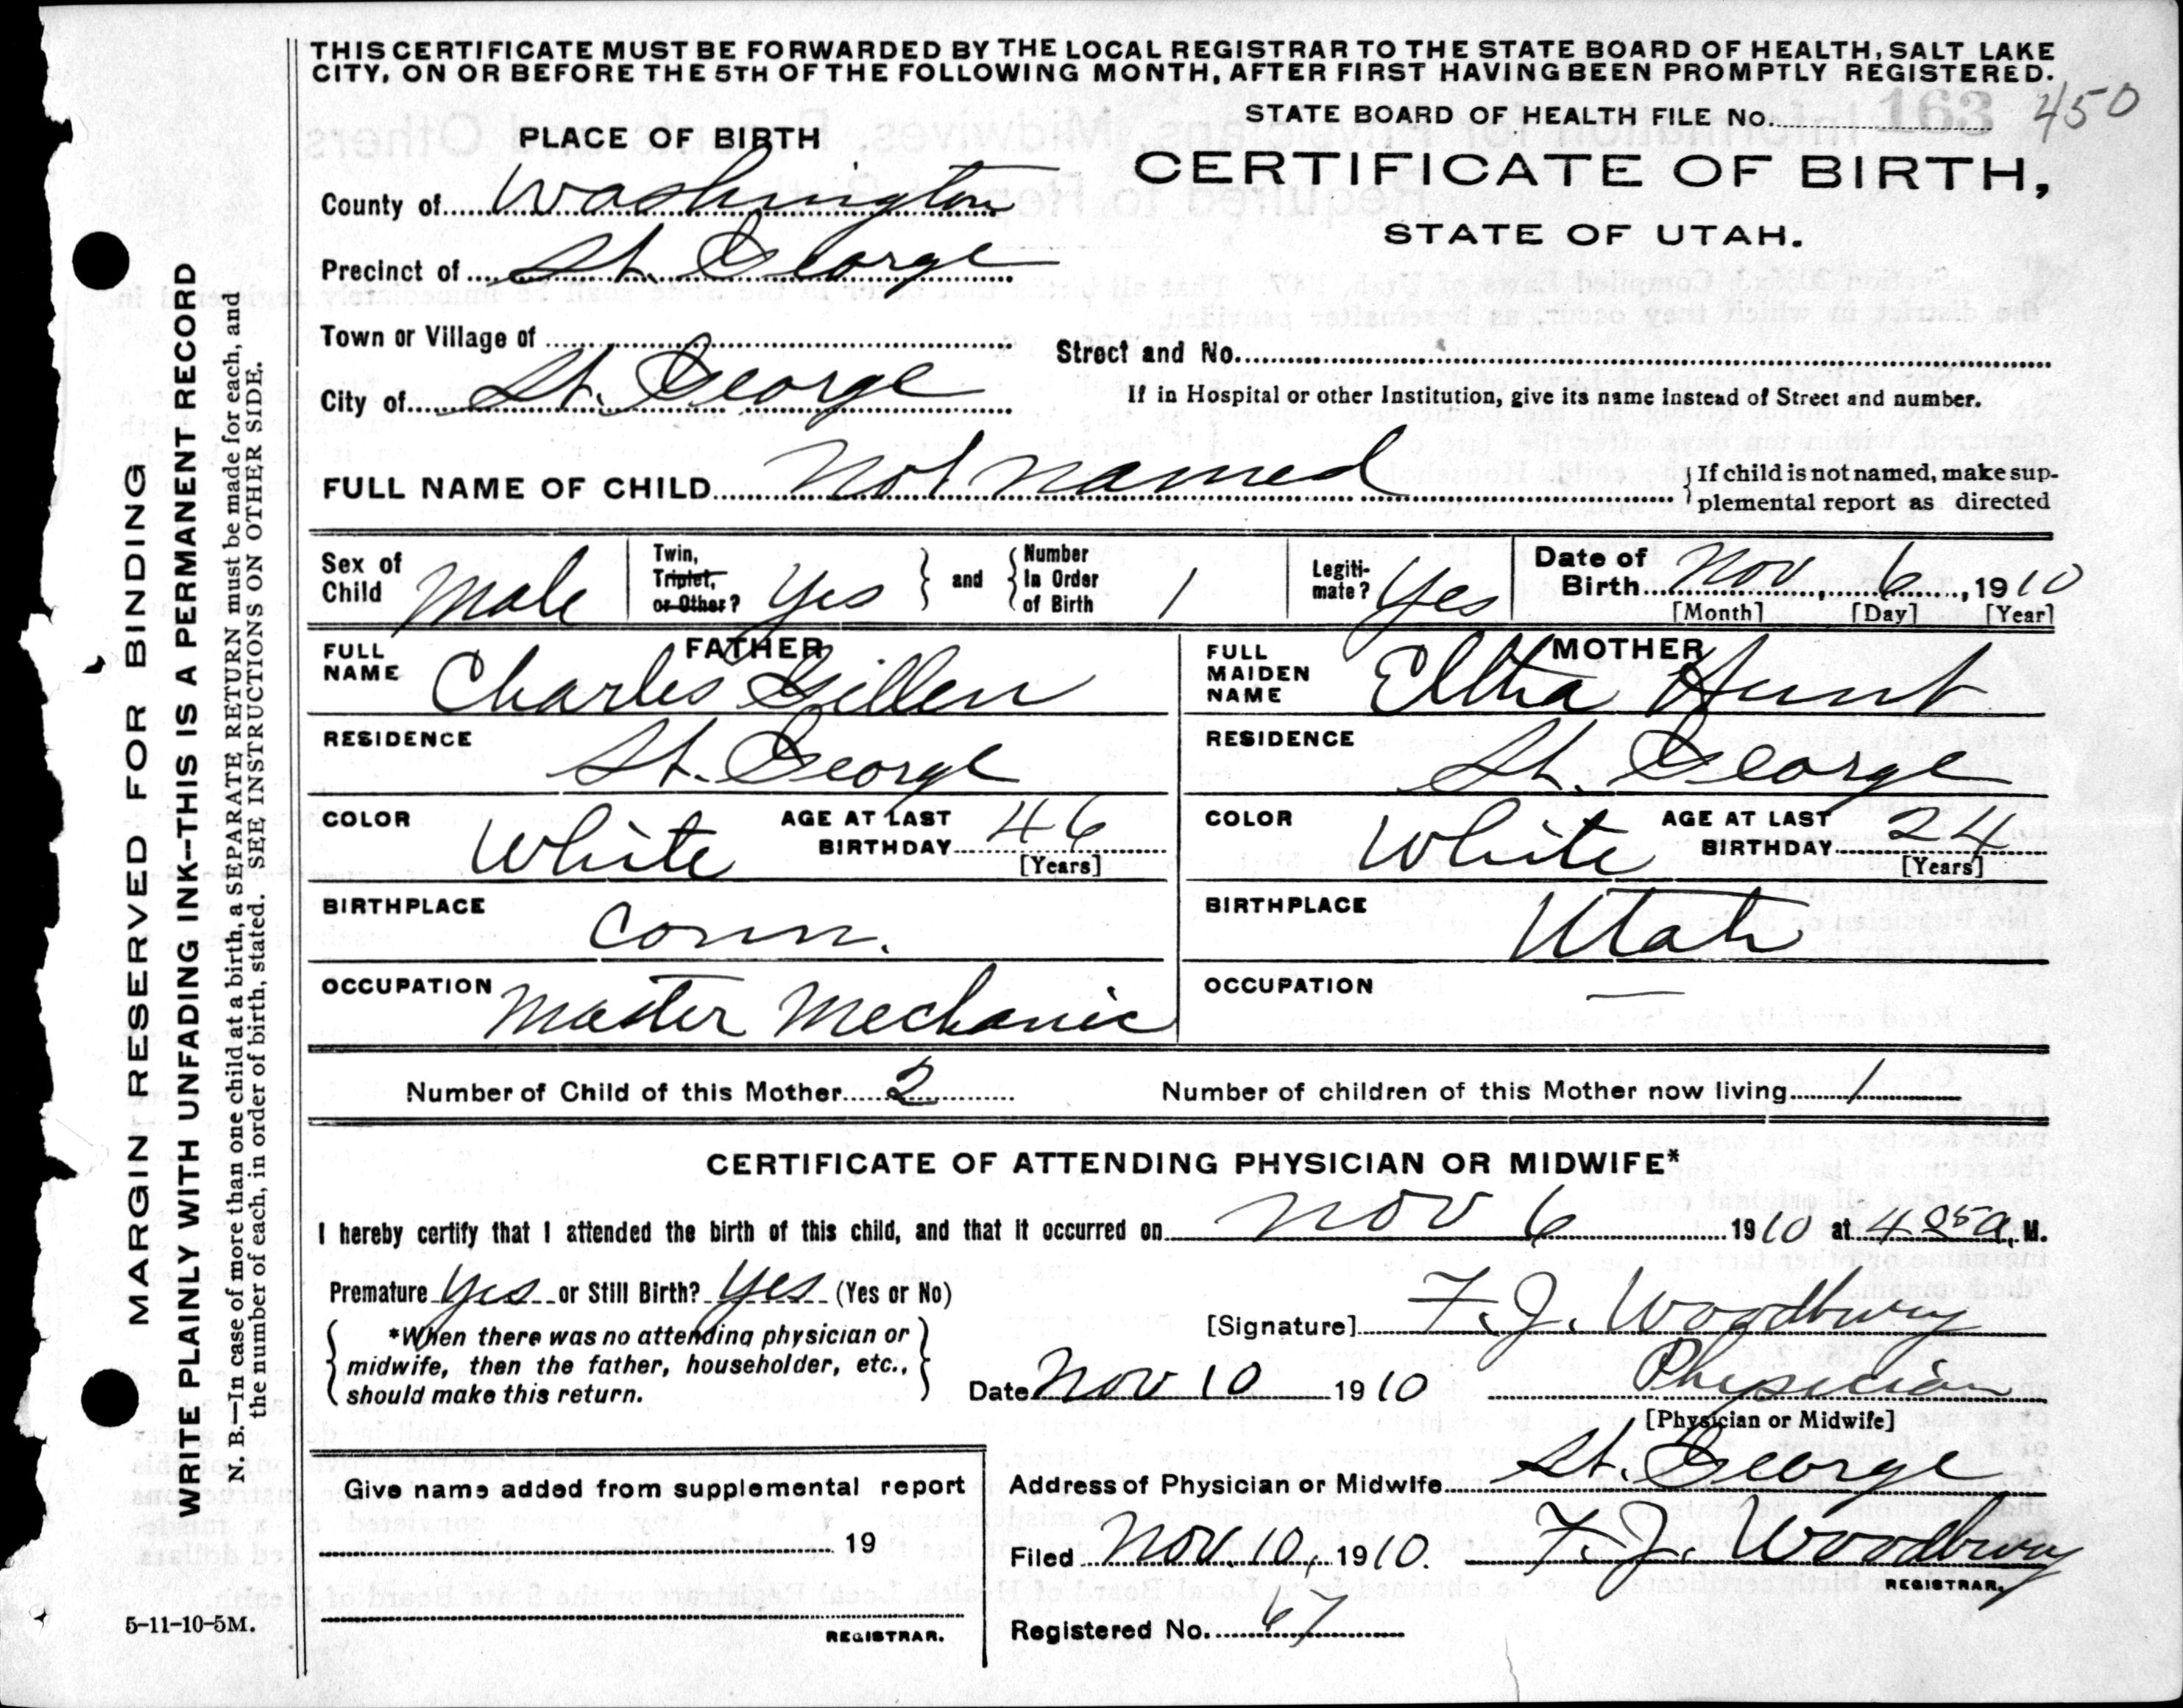 THIS CERTIFICATE MUST BE FORWARDED BY THE LOCAL REGISTRAR TO THE STATE BOARD OF HEALTH, SALT LAKE
CITY, ON OR BEFORE THE 5TH OF THE FOLLOWING MONTH, AFTER FIRST HAVING BEEN PROMPTLY REGISTERED.
STATE BOARD OF HEALTH FILE No. 163 450
PLACE OF BIRTH
CERTIFICATE OF BIRTH,
STATE OF UTAH.
County of Washington
Precinct of St. George
Town or Village of
Street and No.
City of St. George
If in Hospital or other Institution, give its name instead of Street and number.
FULL NAME OF CHILD Not named
If child is not named, make sup-
plemental report as directed
Sex of Child Male
Twin, Triplet, or Other? Yes
and
Number In Order of Birth 1
Legiti-mate? Yes
Date of Birth Nov 6, 1910
[Month] [Day] [Year]
FATHER
FULL NAME Charles Gillen
MOTHER
FULL MAIDEN NAME Eltha Hunt
RESIDENCE St. George
RESIDENCE St. George
COLOR White AGE AT LAST BIRTHDAY 46 [Years]
COLOR White AGE AT LAST BIRTHDAY 24 [Years]
BIRTHPLACE Conn.
BIRTHPLACE Utah
OCCUPATION Master Mechanic
OCCUPATION —
Number of Child of this Mother 2
Number of children of this Mother now living 1
CERTIFICATE OF ATTENDING PHYSICIAN OR MIDWIFE*
I hereby certify that I attended the birth of this child, and that it occurred on Nov 6 1910 at 4 05 a. M.
Premature Yes or Still Birth? Yes (Yes or No)
[Signature] F. J. Woodbury
*When there was no attending physician or
midwife, then the father, householder, etc.,
should make this return.
Date Nov 10 1910 Physician
[Physician or Midwife]
Give name added from supplemental report
19
REGISTRAR.
Address of Physician or Midwife St. George
Filed Nov. 10, 1910. F. J. Woodbury
REGISTRAR.
Registered No. 67
5-11-10-5M.
MARGIN RESERVED FOR BINDING
WRITE PLAINLY WITH UNFADING INK--THIS IS A PERMANENT RECORD
N. B.—In case of more than one child at a birth, a SEPARATE RETURN must be made for each, and
the number of each, in order of birth, stated. SEE INSTRUCTIONS ON OTHER SIDE.